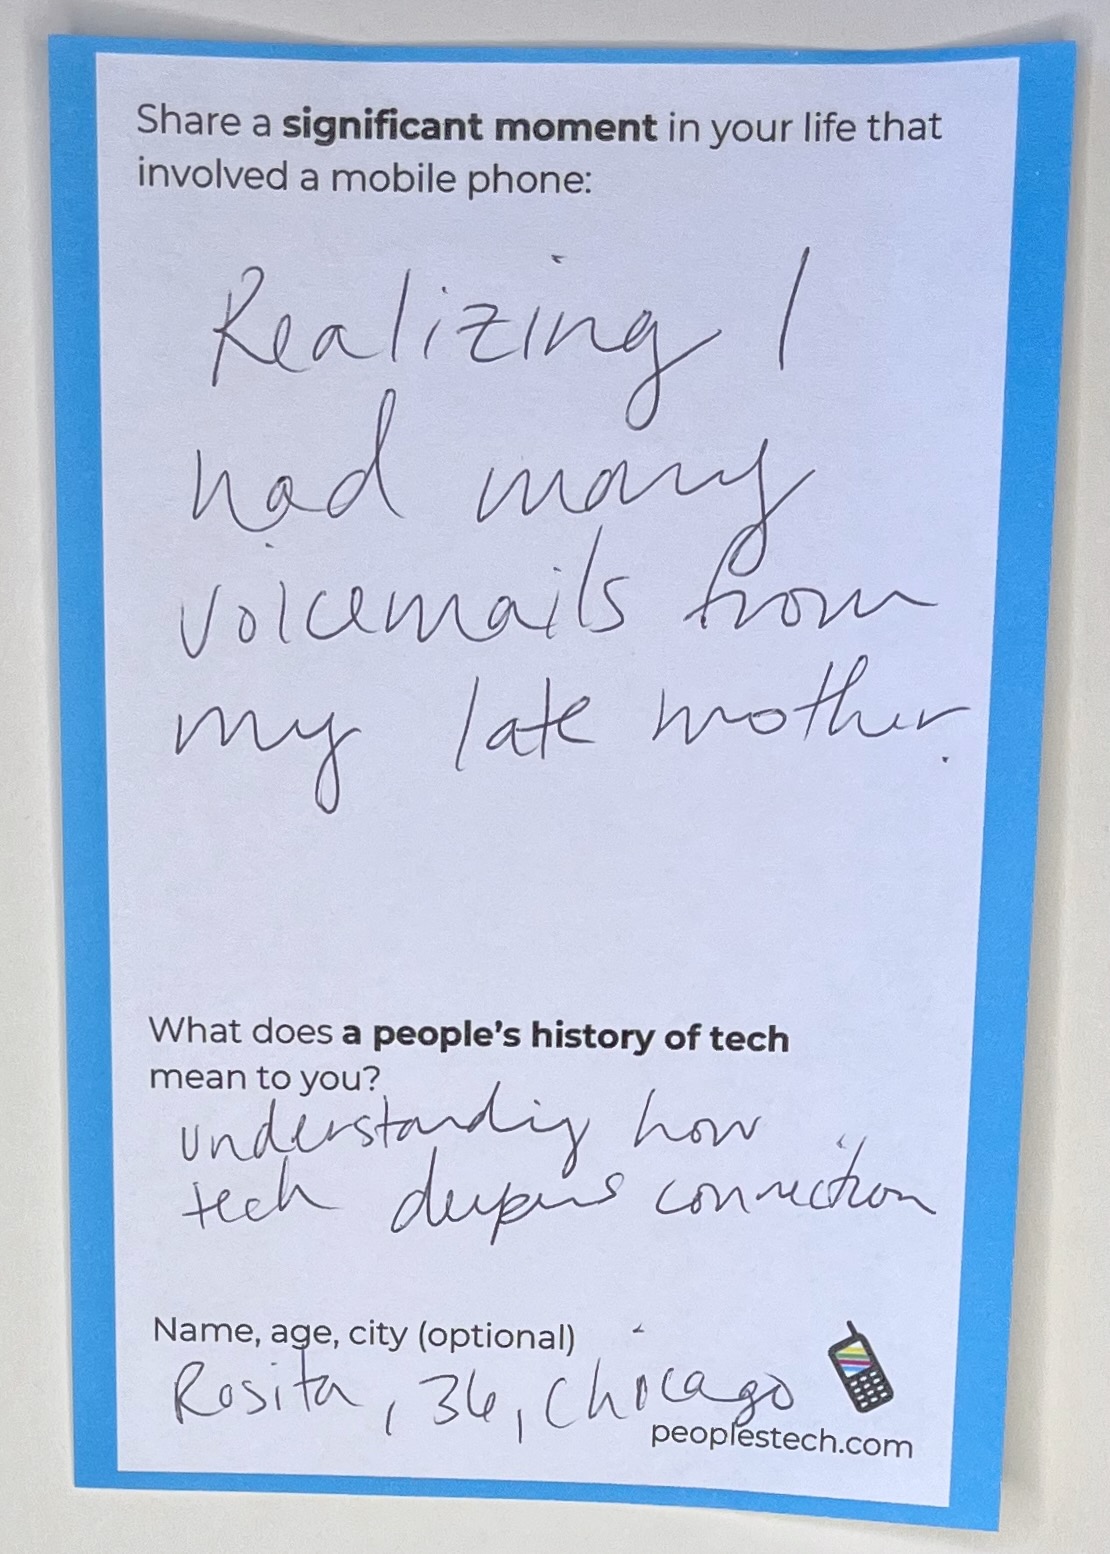 Share a significant moment in your life that
involved a mobile phone:
Realizing I
had many
voicemails from
my late mother.
What does a people's history of tech
mean to you?
understanding how
tech deepens connection
Name, age, city (optional)
Rosita, 36, Chicago
peoplestech.com